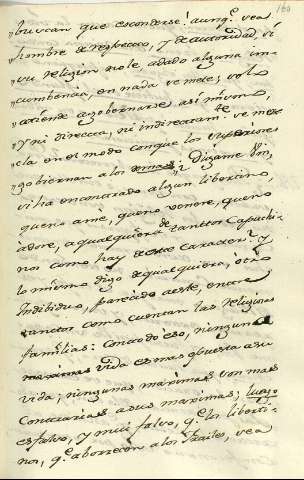 160
"buscan que esconderse: aunq.e vea
"hombre de respecto, y de autoridad, si
"su religion no le, a dado alguna in-
"cumbencia, en nada se mete; solo
"atiende a gobernarse asi mismo,
"y ni directa, ni indirectam.te se mez
"cla en el modo con que los superiores
"gobiernan a los demas? Digame Vm,
"si ha encontrado algun libertino,
que no ame, que no venere, que no
adore, a qualquiera de tanttos Capuchi-
nos como hay de este caracter? y
lo mismo digo de qualquiera, otro
Individuo, parecido a este, entre
tanttos como cuentan las religiosas
familias: con todo eso, ninguna
vida es mas opuesta a su
vida; ningunas maximas son mas
contrarias a sus maximas; luego
es falso, y mui falso, q.e los liberti-
nos, q.e aborrecen a los frailes, sea